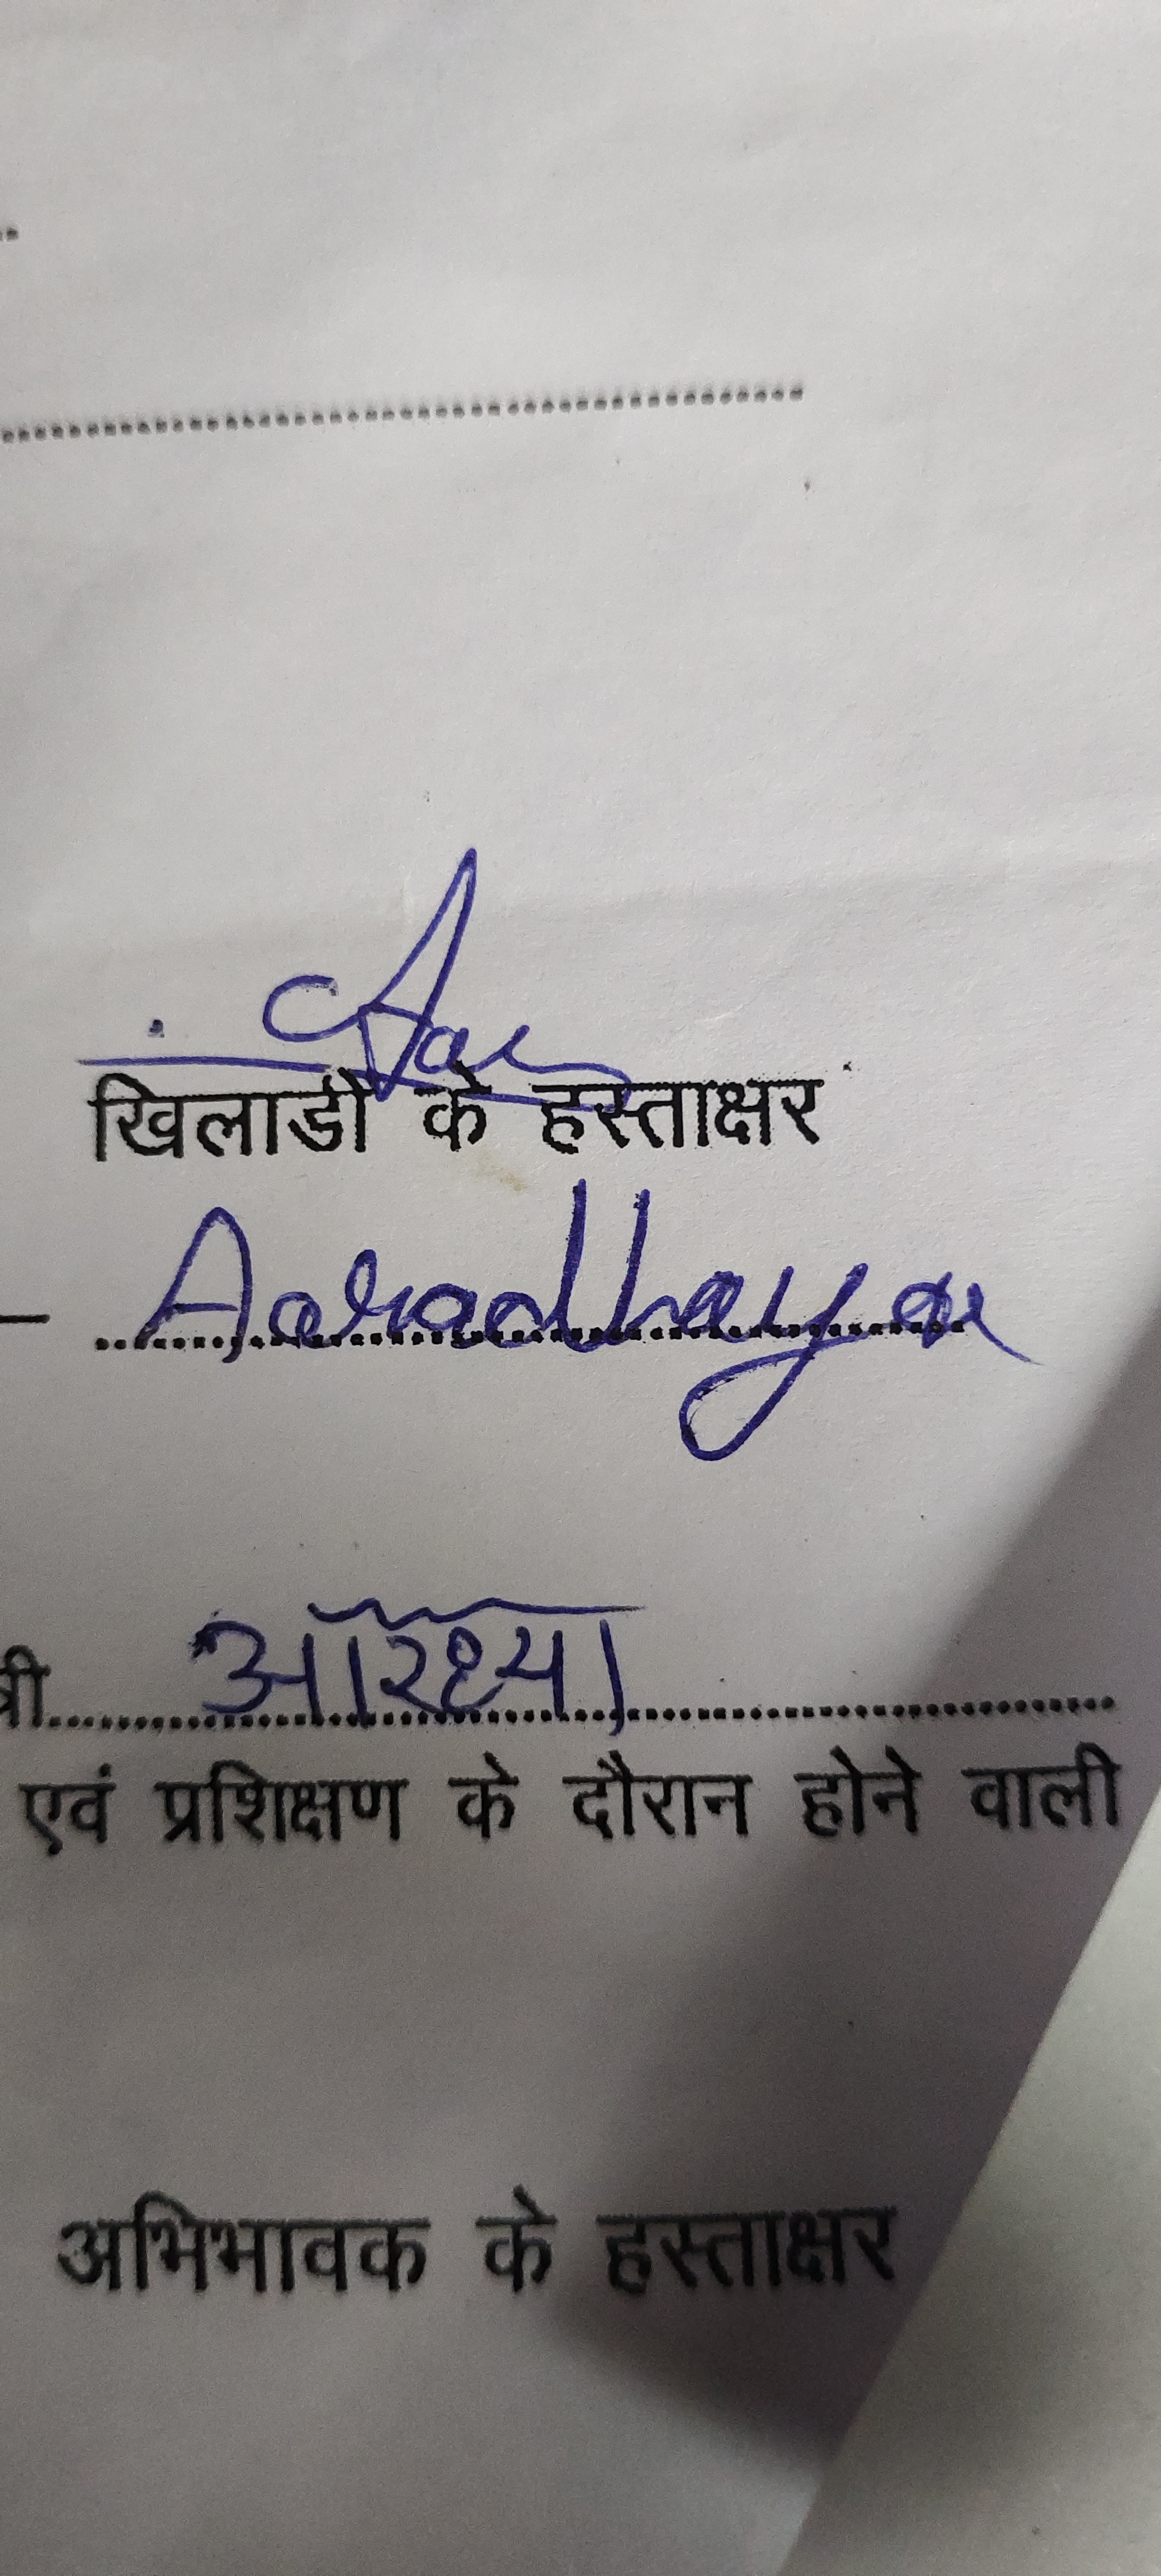 खिलाडी के हस्ताक्षर
– Aaradhaya
त्री आरध्या
एवं प्रशिक्षण के दौरान होने वाली
अभिभावक के हस्ताक्षर